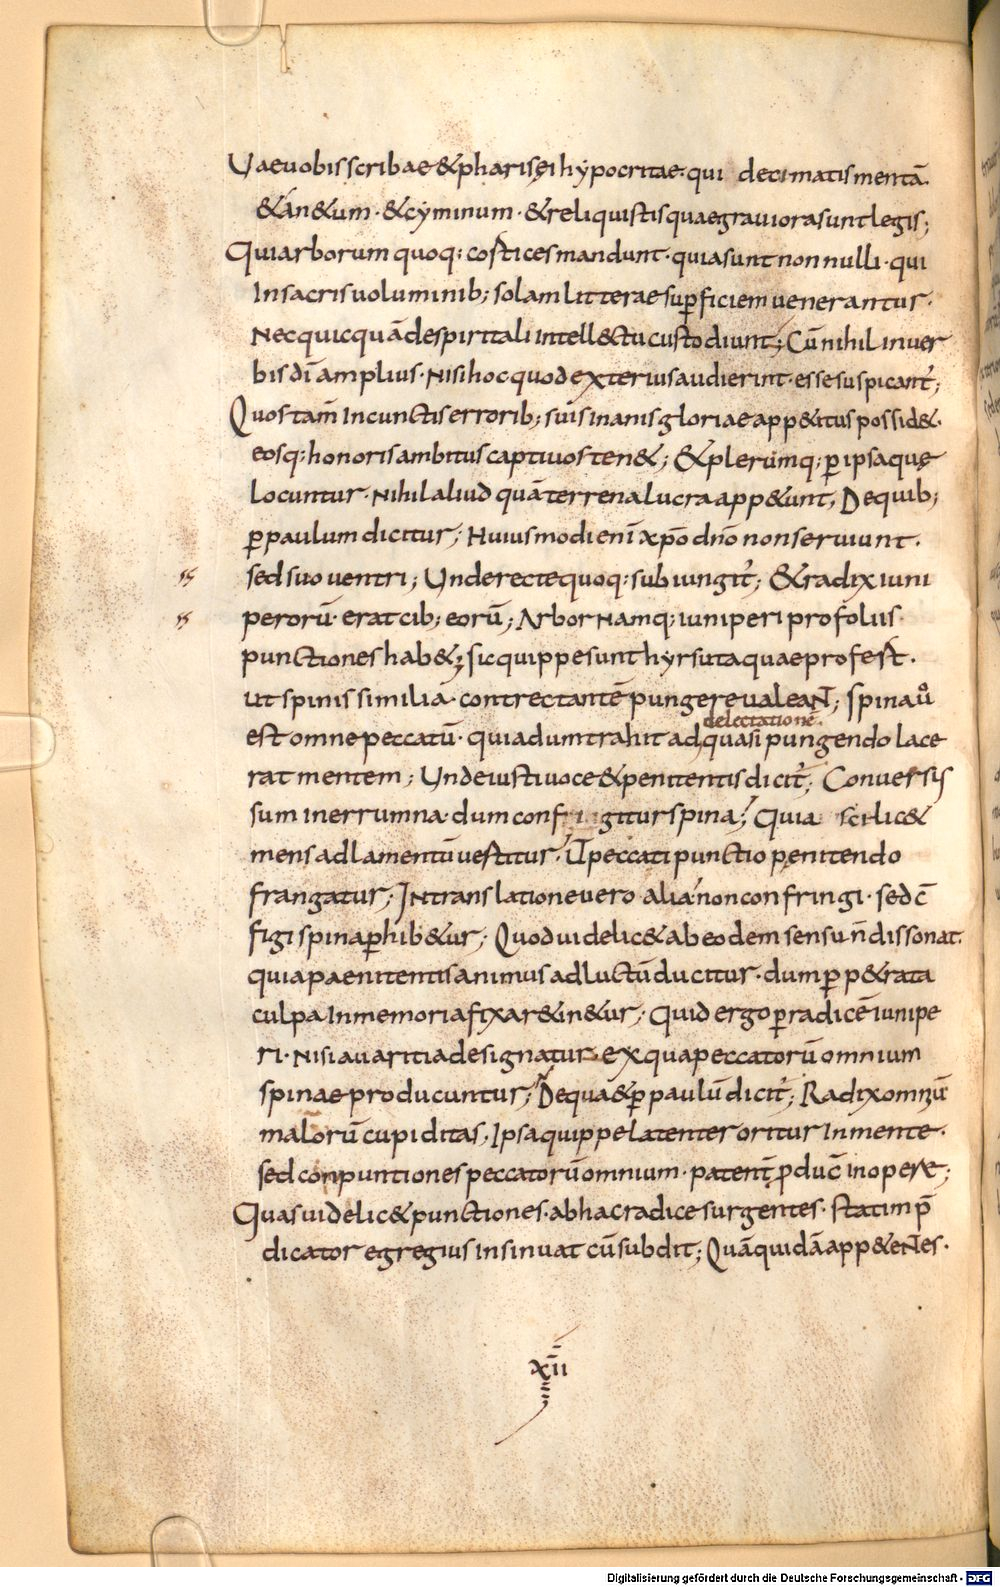 Uae uobis scribae & pharisęi hypocritae· qui decimatis mentā·
& an&um· & cyminum· & reliquistis quae grauiora sunt legis;
Qui arborum quoq; cortices mandunt· quia sunt non nulli· qui
In sacris uoluminib; solam litterae sup̄ficiem uenerantur·
Nec quicquā de spiritali intell&u custodiunt; Cū nihil in uer
bis dī amplius· Nisi hoc quod exterius audierint· esse suspicant̄;
Quos tam̄ In cunctis errorib; suis inanis gloriae app&itus possid&·
eosq; honoris ambitus captiuos ten&; & plerumq; p̄ ipsa quę
Locuntur· Nihil aliud quā terrena lucra app&unt; De quib;
p̄ paulum dicitur; Huiusmodi enī xp̄o dn̄o non seruiunt·
sed suo uentri; Unde recte quoq; subiungit̄; & radix iuni
perorū· erat cib; eorū; Arbor Namq; iuniperi pro foliis·
punctiones hab&; sic quippe sunt hyrsuta quae profest·
ut spinis similia· contrectantē pungere ualeant; spina ūo
delectationē·
est omne peccatū· quia dum trahit ad quasi pungendo lace
rat mentem; Unde iusti uoce & penitentis dicit̄; Conuersus
sum in erumna· dum confringitur spina; Quia scilic&
mens ad lamentū uestitur· ut peccati punctio pęnitendo
frangatur; In translatione uero alia· non confringi· sed c̄
figi spina p̄hib&ur; Quod uidelic& ab eodem sensu n̄ dissonat·
quia paenitentis animus ad luctū ducitur· dum p̄p&rata
culpa In memoria fixa r&in&ur; Quid ergo p̄ radicē iunipe
ri· Nisi auaritia designatur· ex qua peccatorū omnium
spinae producuntur; De qua & p̄ paulū dicit̄; Radix omniū
malorū cupiditas; Ipsa quippe latenter oritur In mente·
sed conpuntiones peccatorū omnium· patent̄ p̄duc̄ in opere;
Quas uidelic& punctiones· ab hac radice surgentes· statim p̄
dicator egregius Insinuat cū subdit; Quā quidā app&entes·
xii